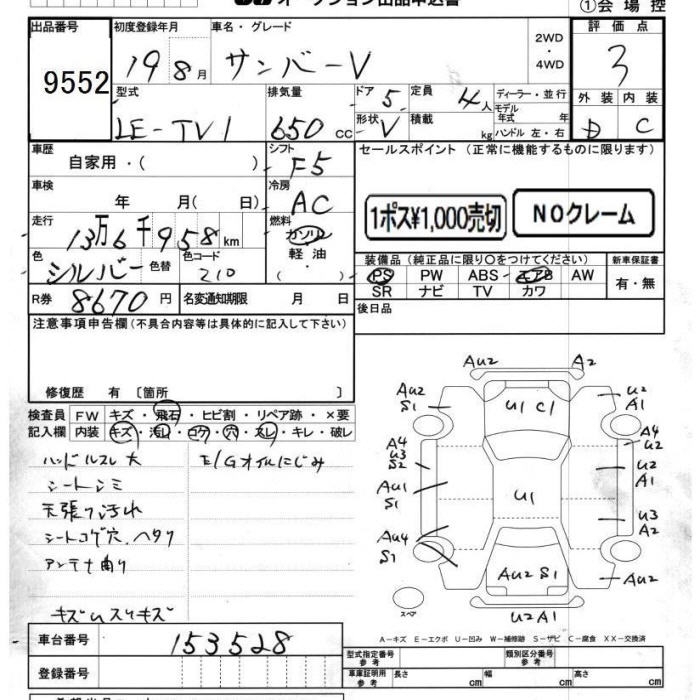 オークション出品申込書
①会場控
出品番号 初度登録年月 車名・グレード 2WD・4WD 評価点
9552 19 8月 サンバーV 3
型式 排気量 ドア 5 定員 4人 ディーラー・並行 外装 内装
LE-TV1 650 cc 形状 V 積載 kg モデル年式 年 ハンドル 左・右 D C
車歴 シフト セールスポイント (正常に機能するものに限ります)
自家用・( ) F5
車検 冷房
年 月( 日) AC 1ポス¥1,000売切 NOクレーム
走行 燃料
13万6千958km ガソリン
色 色替 色コード 軽油・ 装備品(純正品に限り○をつけてください) 新車保証書
シルバー 210 ( ) PS PW ABS エアB AW 有・無
R券 8670円 名変通知期限 月 日 SR ナビ TV カワ
注意事項申告欄(不具合内容等は具体的に記入して下さい) 後日品
修復歴 有 〔箇所 〕
検査員 FW キズ・飛石・ヒビ割・リペア跡・×要
記入欄 内装 キズ・汚レ・コゲ・穴・スレ・キレ・破レ
ハンドルスレ大 E/Gオイルにじみ
シートシミ
天張り汚れ
シートコゲ穴、ヘタリ
アンテナ曲り
キズUスリキズ
AU2 A2
AU2 S1 U1 C1 U2 A1
A4 U3 S2 A4 U2
AU1 S1 U1 U2 A1
AU4 S1 U3 A2
AU2 S1 AU2
スペア U2A1
A-キズ E-エクボ U-凹み W-補修跡 S-サビ C-腐食 XX-交換済
車台番号 153528
登録番号
型式指定番号 参考 類別区分番号 参考
車庫証明用 参考 長さ cm 幅 cm 高さ cm